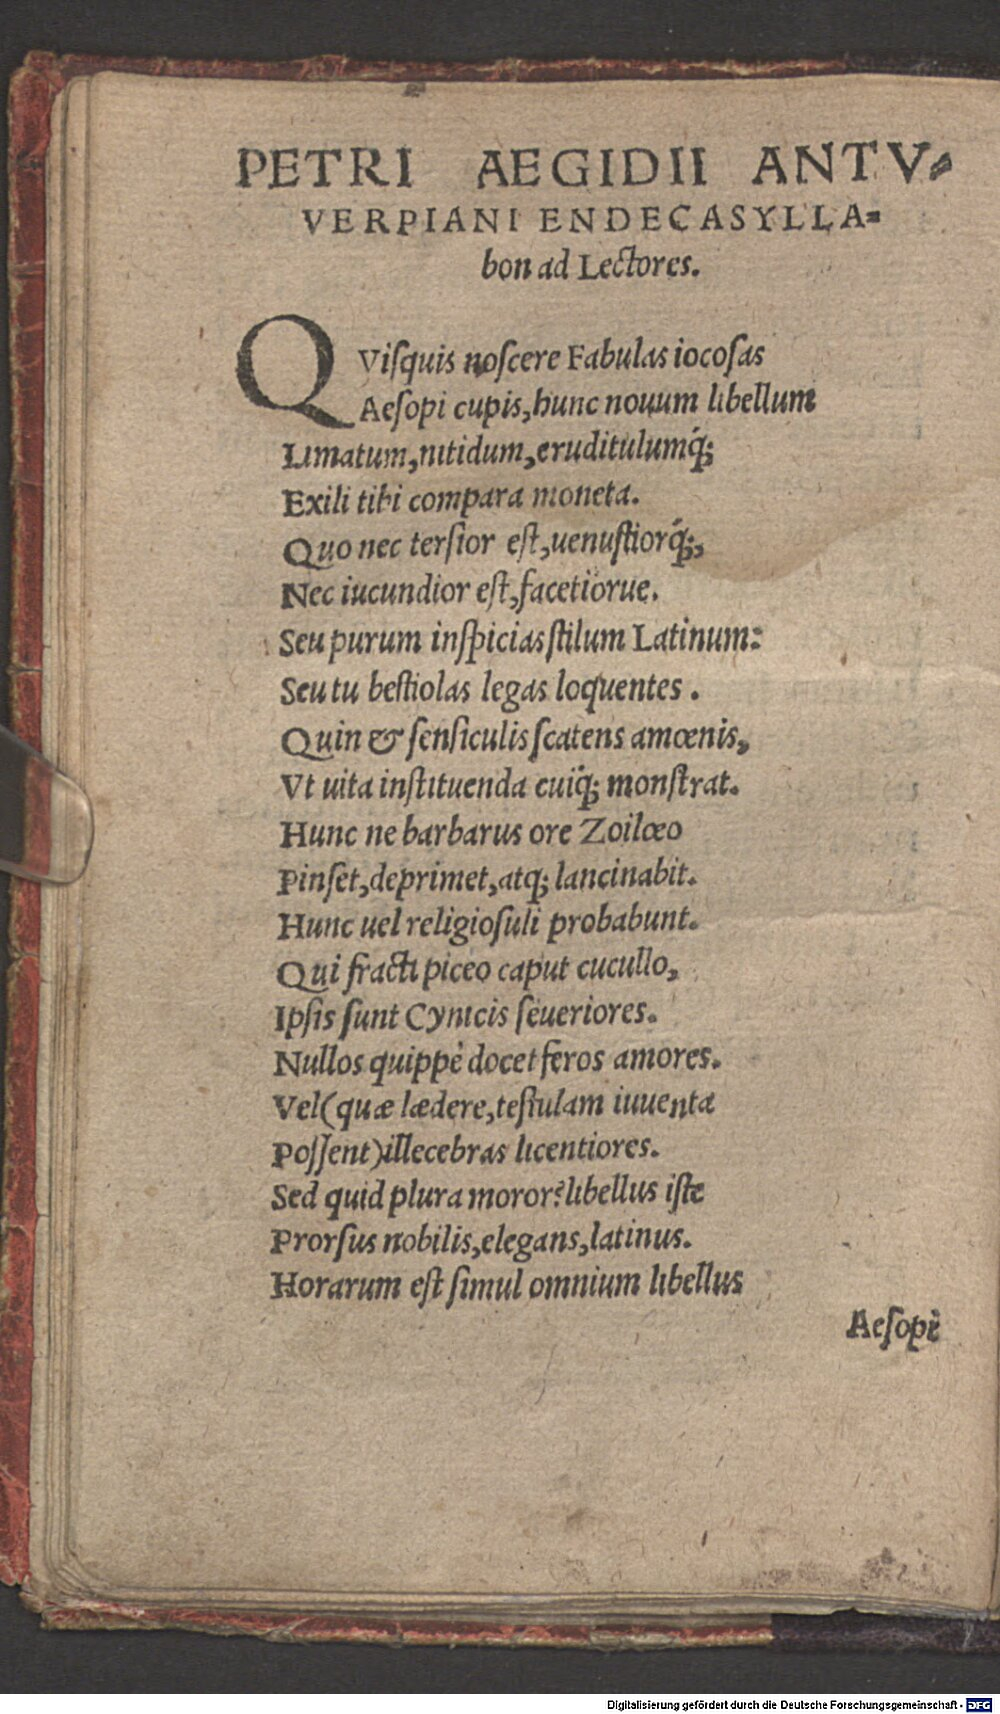 PETRI AEGIDII ANTV-
VERPIANI ENDECASYLLA=
bon ad Lectores.
QVisquis noscere Fabulas iocosas
Aesopi cupis, hunc nouum libellum
Limatum, nitidum, eruditulumq́;
Exili tibi compara moneta.
Quo nec tersior est, uenustiorq́;,
Nec iucundior est, facetiorue.
Seu purum inspicias stilum Latinum:
Seu tu bestiolas legas loquentes.
Quin & sensiculis scatens amœnis,
Vt uita instituenda cuiq̈; monstrat.
Hunc ne barbarus ore Zoilœo
Pinset, deprimet, atq; lancinabit.
Hunc uel religiosuli probabunt.
Qui fracti piceo caput cucullo,
Ipsis sunt Cynicis seueriores.
Nullos quippè docet feros amores.
Vel (quæ lædere, testulam iuuentæ
Possent) illecebras licentiores.
Sed quid plura moror? libellus iste
Prorsus nobilis, elegans, latinus.
Horarum est simul omnium libellus
Aesopi
Digitalisierung gefördert durch die Deutsche Forschungsgemeinschaft - DFG